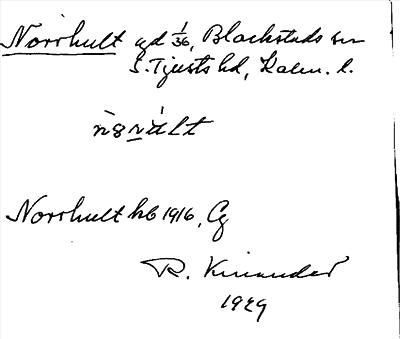 Norrhult gd 1/36, Blackstads sn
S. Tjusts hd, Kalm. l.
Norrhult hb 1916, Cg
R. Kinander
1929